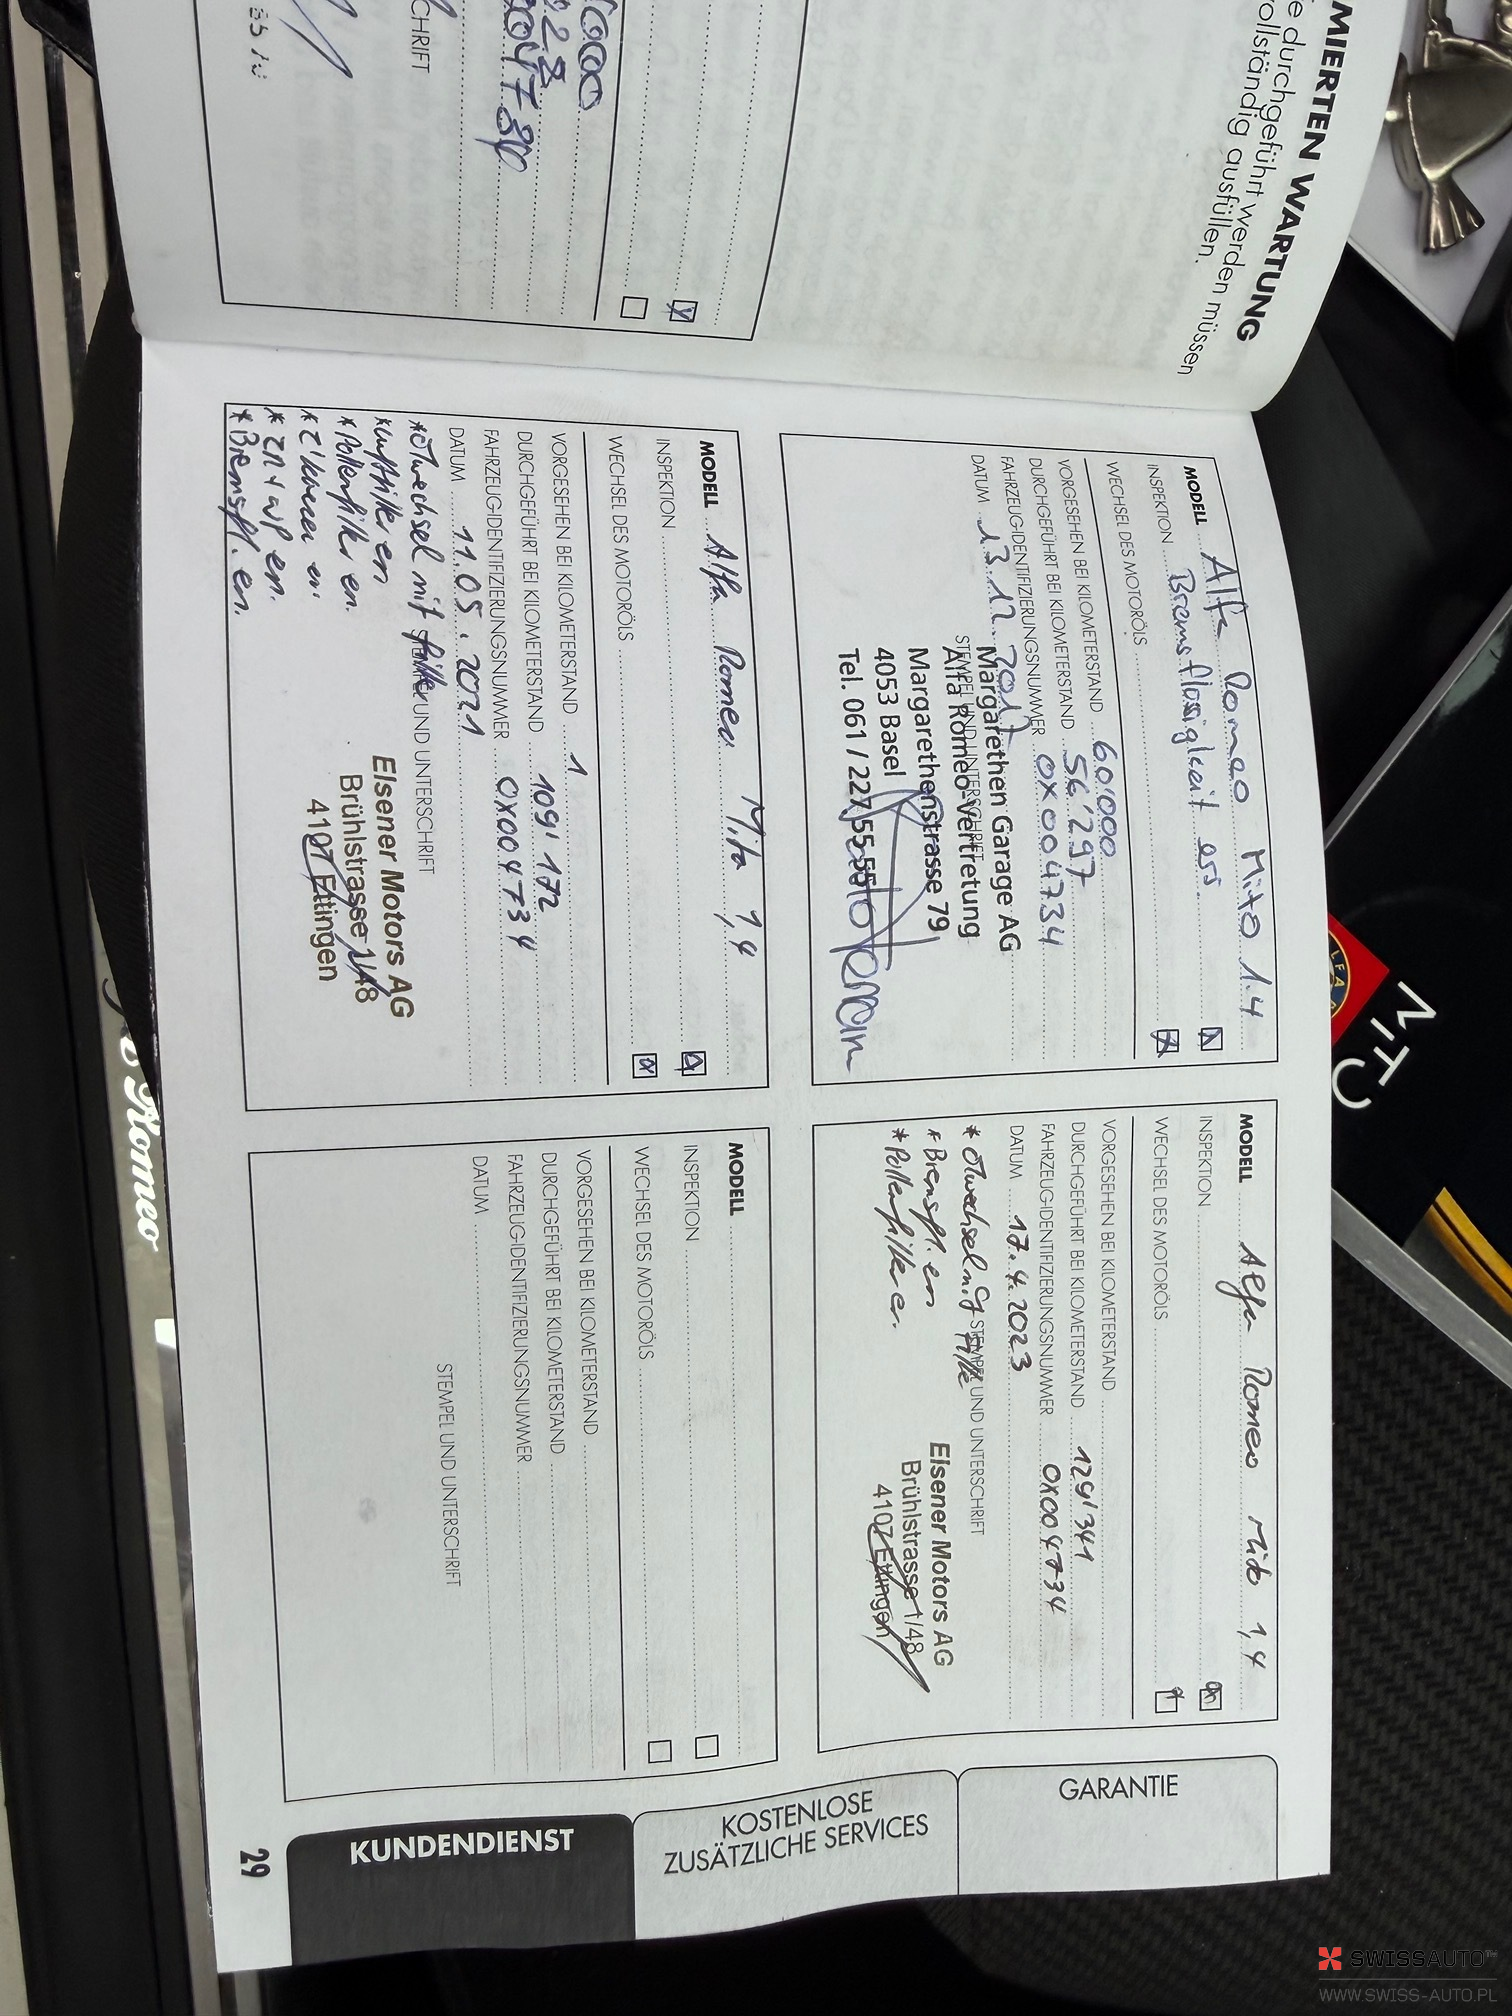 MIERTEN WARTUNG
e durchgeführt werden müssen
ollständig ausfüllen.
CHRIFT
MODELL Alfa Romeo Mito 1.4
INSPEKTION Bremsflüssigkeit ers.
WECHSEL DES MOTORÖLS
VORGESEHEN BEI KILOMETERSTAND 60'000
DURCHGEFÜHRT BEI KILOMETERSTAND 56'297
FAHRZEUG-IDENTIFIZIERUNGSNUMMER 0X004734
DATUM 13.12.2017
STEMPEL UND UNTERSCHRIFT
Margarethen Garage AG
Alfa Romeo-Vertretung
Margarethenstrasse 79
4053 Basel
Tel. 061 / 227 55 55
MODELL Alfa Romeo Mito 1,4
INSPEKTION
WECHSEL DES MOTORÖLS
VORGESEHEN BEI KILOMETERSTAND 1
DURCHGEFÜHRT BEI KILOMETERSTAND 109'172
FAHRZEUG-IDENTIFIZIERUNGSNUMMER 0X004734
DATUM 11.05.2021
STEMPEL UND UNTERSCHRIFT
*Ölwechsel mit Filter
*Luftfilter en
*Pollenfilter en.
*Z'kerzen en.
*ZR + WP en.
*Bremsfl. en.
Elsener Motors AG
Brühlstrasse 1/48
4107 Ettingen
MODELL Alfa Romeo Mito 1,4
INSPEKTION
WECHSEL DES MOTORÖLS
VORGESEHEN BEI KILOMETERSTAND
DURCHGEFÜHRT BEI KILOMETERSTAND 129'341
FAHRZEUG-IDENTIFIZIERUNGSNUMMER 0X004734
DATUM 17.4.2023
STEMPEL UND UNTERSCHRIFT
* Ölwechsel mit Filter
* Bremsfl. en
* Pollenfilter en.
Elsener Motors AG
Brühlstrasse 1/48
4107 Ettingen
MODELL
INSPEKTION
WECHSEL DES MOTORÖLS
VORGESEHEN BEI KILOMETERSTAND
DURCHGEFÜHRT BEI KILOMETERSTAND
FAHRZEUG-IDENTIFIZIERUNGSNUMMER
DATUM
STEMPEL UND UNTERSCHRIFT
GARANTIE
KOSTENLOSE
ZUSÄTZLICHE SERVICES
KUNDENDIENST
29
MiTo
Romeo
SWISSAUTO
WWW.SWISS-AUTO.PL